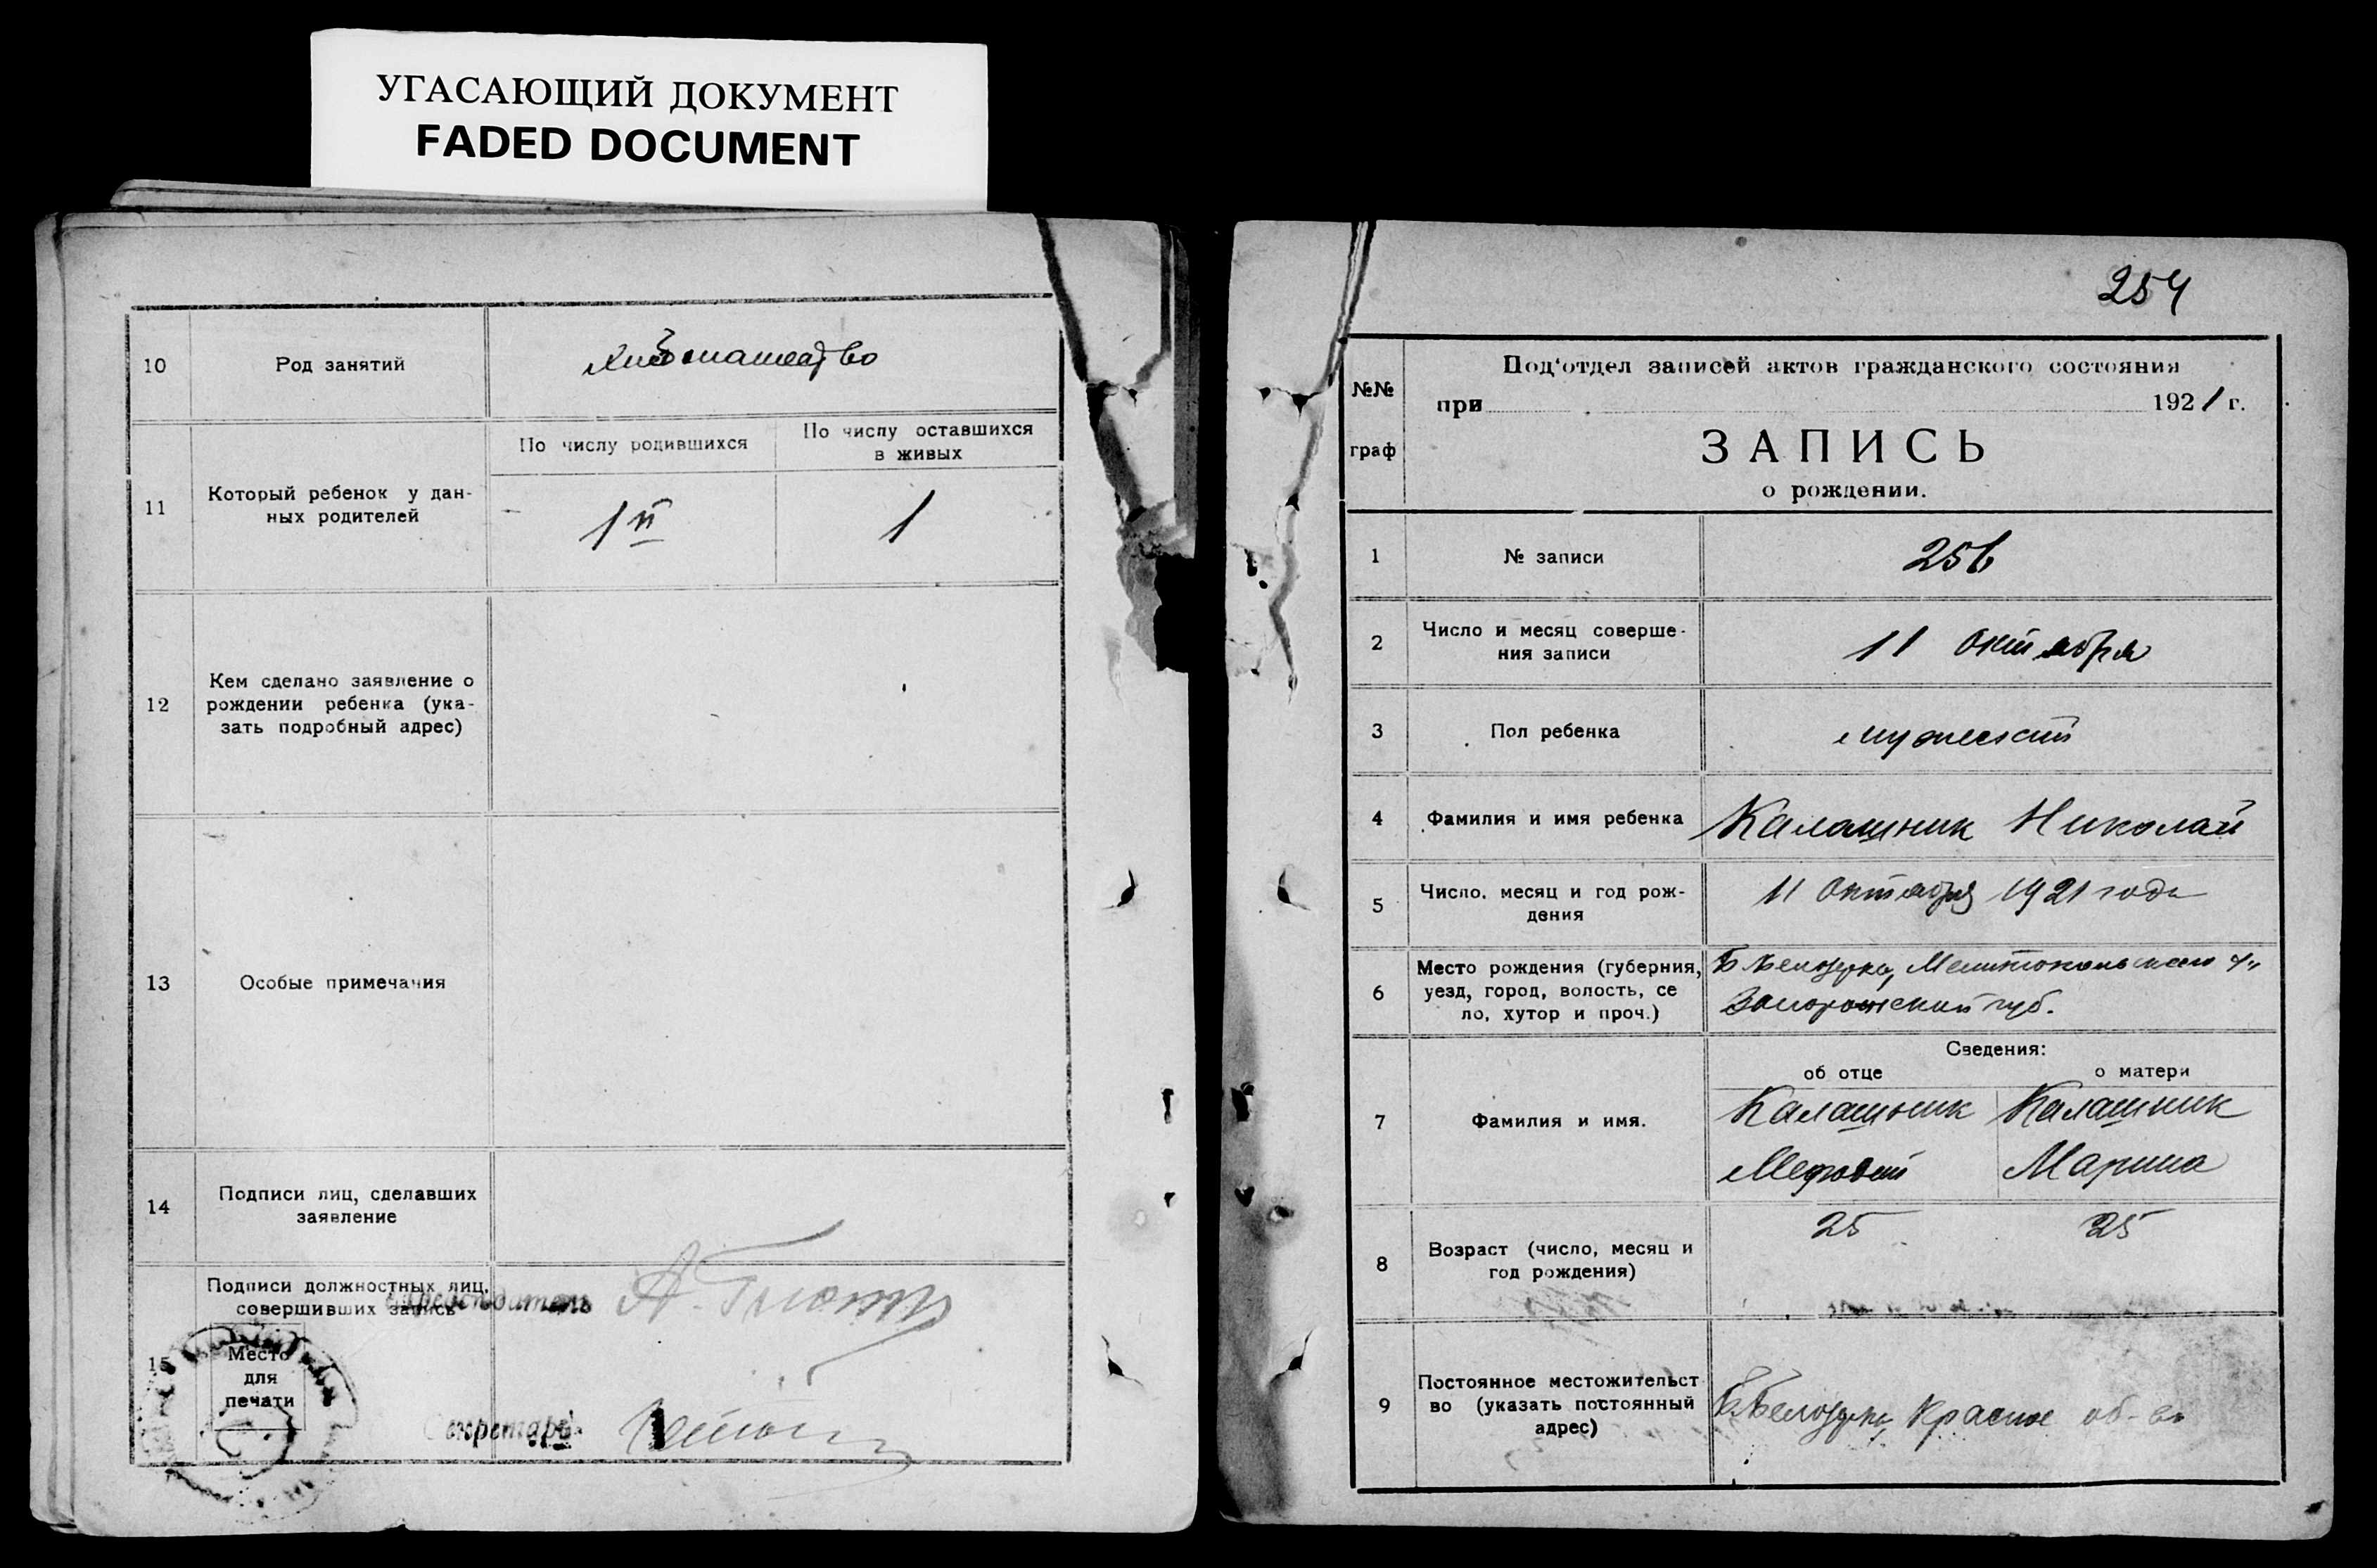 УГАСАЮЩИЙ ДОКУМЕНТ
FADED DOCUMENT
10
Род занятий
11
Который ребенок у дан-
ных родителей
По числу родившихся
По числу оставшихся
в живых
1й
1
12
Кем сделано заявление о
рождении ребенка (ука-
зать подробный адрес)
13
Особые примечания
14
Подписи лиц, сделавших
заявление
15
Подписи должностных лиц,
совершивших запись
Председатель
Место
для
печати
Секретарь
254
№№
граф
Под'отдел записей актов гражданского состояния
при 1921 г.
ЗАПИСЬ
о рождении.
1
№ записи
256
2
Число и месяц соверше-
ния записи
11 октября
3
Пол ребенка
мужеский
4
Фамилия и имя ребенка
Калашник Николай
5
Число, месяц и год рож-
дения
11 октября 1921 года
6
Место рождения (губерния,
уезд, город, волость, се
ло, хутор и проч.)
Б Белозерка, Мелитопольского у.
Запорожский губ.
Сведения:
об отце
о матери
7
Фамилия и имя.
Калашник
Мефодий
Калашник
Марина
8
Возраст (число, месяц и
год рождения)
25
25
9
Постоянное местожительст
во (указать постоянный
адрес)
Б. Белозерка, Красное об-во